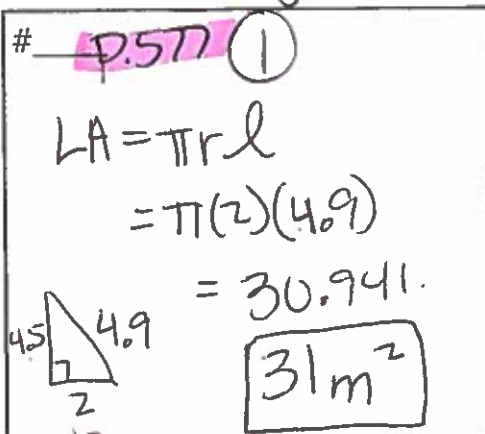 # p.577 1
LA = πrl
= π(2)(4.9)
= 30.941.
4.5 4.9
2
31m²